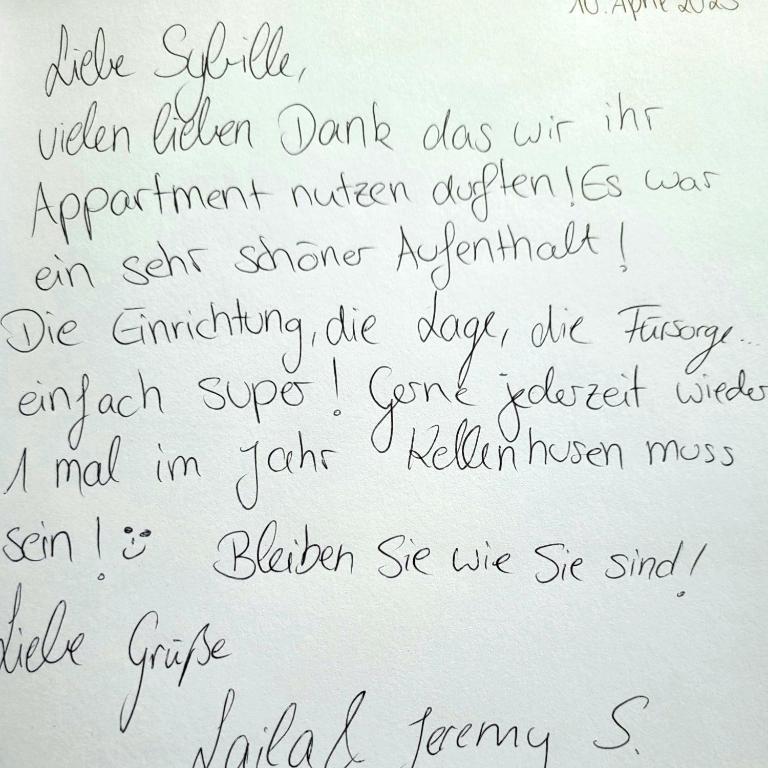 10. April 2023
Liebe Sybille,
vielen lieben Dank das wir ihr
Appartment nutzen duften! Es war
ein sehr schöner Aufenthalt!
Die Einrichtung, die Lage, die Fürsorge...
einfach super! Gerne jederzeit wieder
1 mal im Jahr Kellenhusen muss
sein! Bleiben Sie wie Sie sind!
Liebe Grüße
Laila & Jeremy S.